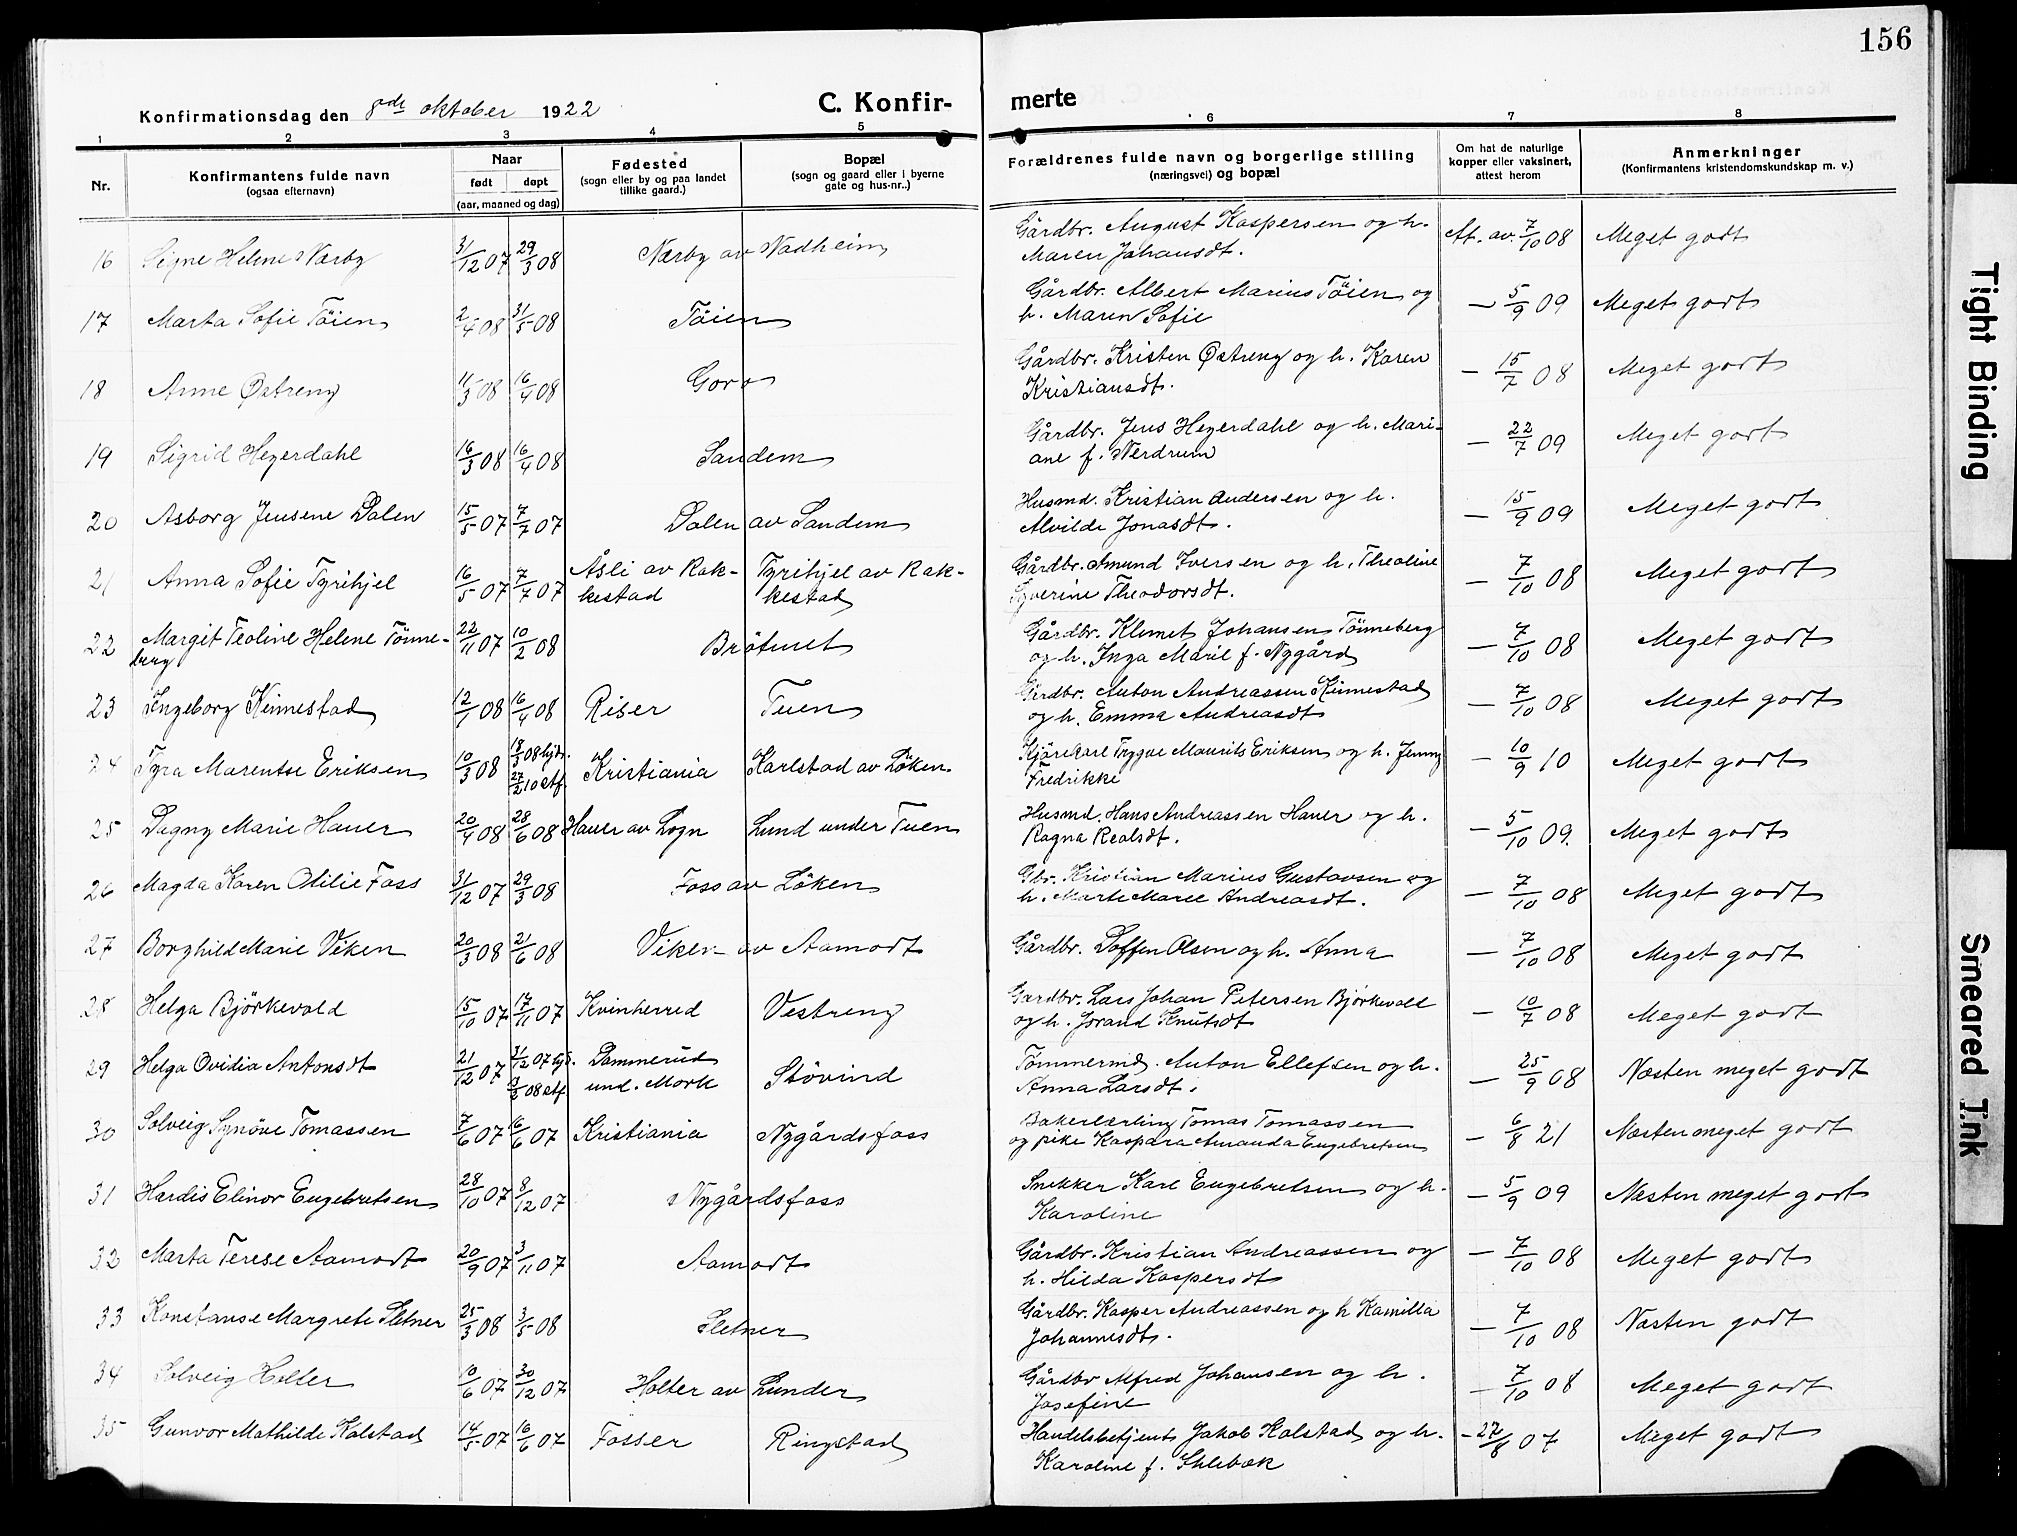 156
Konfirmationsdag den 8de oktober 1922
C. Konfir-
merte
1 2 3 4 5 6 7 8
Nr.
Konfirmantens fulde navn
(ogsaa efternavn)
Naar
født døpt
(aar, maaned og dag)
Fødested
(sogn eller by og paa landet
tillike gaard.)
Bopæl
(sogn og gaard eller i byerne
gate og hus-nr..)
Forældrenes fulde navn og borgerlige stilling
(næringsvei) og bopæl
Om hat de naturlige
kopper eller vaksinert,
attest herom
Anmerkninger
(Konfirmantens kristendomskundskap m. v.)
16 Signe Helene Nærby 31/12 07 29/3 08 Nærby av Nadheim Gårdbr. August Kaspersen og h. At. av. 7/10 08 Meget godt
Maren Johansdt.
17 Marta Sofie Töien 2/4 08 31/5 08 Töien Gårdbr. Albert Marius Töien og — 5/9 09 Meget godt
h. Maren Sofie
18 Anne Østreng 11/3 08 16/4 08 Goro Gårdbr. Kristen Østreng og h. Karen — 15/7 08 Meget godt
Kristiansdt.
19 Sigrid Heyerdahl 16/3 08 16/4 08 Sandem Gårdbr. Jens Heyerdahl og h. Mari- — 22/7 09 Meget godt
ane f. Nerdrum
20 Asborg Jensene Dalen 15/5 07 7/7 07 Dalen av Sandem Husmd. Kristian Andersen og h. — 15/9 09 Meget godt
Alvilde Jonasdt.
21 Anna Sofie Tyrihjel 16/5 07 7/7 07 Åsli av Rak- Tyrihjel av Rak- Gårdbr. Amund Iversen og h. Theoline — 7/10 08 Meget godt
kestad kestad Syverine Theodorsdt.
22 Margit Teoline Helene Tönne- 22/11 07 10/2 08 Bråtnet Gårdbr. Klemet Johansen Tönneberg — 7/10 08 Meget godt
berg og h. Inga Marie f. Nygård
23 Ingeborg Kinnestad 12/1 08 16/4 08 Riser Tuen Gårdbr. Anton Andreassen Kinnestad — 7/10 08 Meget godt
og h. Emma Andreasdt
24 Tyra Marentse Eriksen 10/3 08 18/3 08 hjdt. Kristiania Karlstad av Löken. Kjörekarl Trygve Maurits Eriksen og h. Jenny — 10/9 10 Meget godt
27/2 10 stf. Fredrikke
25 Dagny Marie Hauer 20/4 08 28/6 08 Hauer av Sogn Lund under Tuen Husmd. Hans Andreassen Hauer og h. — 5/10 09. Meget godt
Ragna Realsdt.
26 Magda Karen Otilie Foss 31/12 07 29/3 08 Foss av Löken Gbr. Kristian Marius Gustavsen og — 7/10 08 Meget godt
h. Marte Marie Andreasdt.
27 Borghild Marie Viken 20/3 08 21/6 08 Viken av Aamodt Gårdbr. Doffen Olsen og h. Anna — 7/10 08 Meget godt
28 Helga Björkevold 15/10 07 17/11 07 Kvinherred Vestreng Gardbr. Lars Johan Petersen Björkevold — 10/7 08 Meget godt
og h. Jorand Knutsdt
29 Helga Ovidia Antonsdt 21/12 07 31/12 07 hjd. Dammerud Stövind Tömmermd. Anton Ellefsen og h. — 25/9 08 Næsten meget godt
08 stf. und. Mork Anna Larsdt.
30 Solveig Synöve Tomassen 7/6 07 16/6 07 Kristiania Nygårdsfoss Bakerlærling Tomas Tomassen — 6/8 21 Næsten meget godt
og pike Kaspara Amanda Engebretsen
31 Hardis Elinor Engebretsen 28/10 07 8/12 07 Nygårdsfoss Snekker Karl Engebretsen og h. — 5/9 09 Næsten meget godt
Karoline
32 Marta Terese Aamodt 20/9 07 3/11 07 Aamodt Gårdbr. Kristian Andreassen og — 7/10 08 Meget godt
h. Hilda Kaspersdt
33 Konstanse Margrete Sletner 25/3 08 3/5 08 Sletner Gårdbr. Kasper Andreassen og h Kamilla — 7/10 08 Næsten godt
Johannesdt.
34 Solveig Holter 10/6 07 30/12 07 Holter av Lunder Gårdbr Alfred Johansen og h. — 7/10 08 Meget godt
Josefine
35 Gunvor Mathilde Kolstad 14/5 07 16/6 07 Fosser Ringstad Handelsbetjent Jakob Kolstad og h. — 27/8 07 Meget godt
Karoline f. Sklebæk
Tight Binding
Smeared Ink